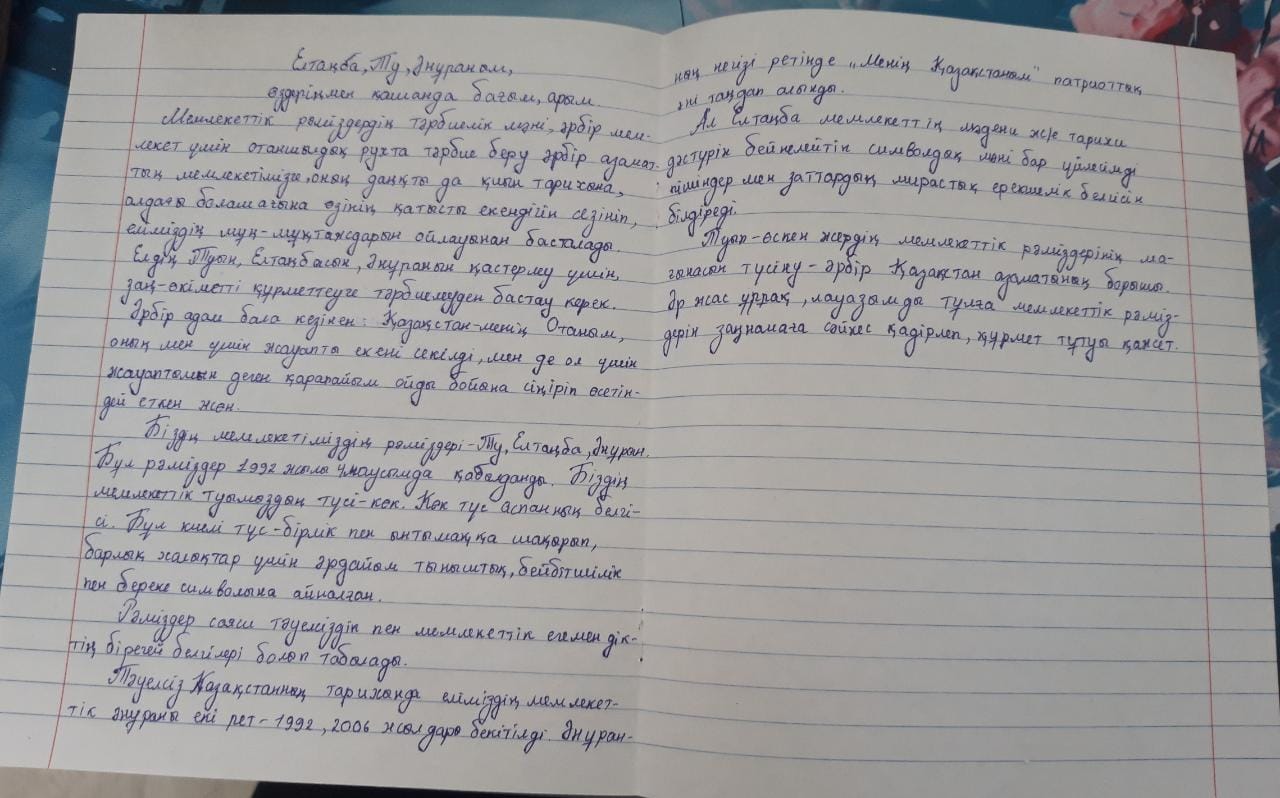 Елтаңба, Ту, Әнұраным,
өздеріңмен қашанда бағым, арым.
Мемлекеттік рәміздердің тәрбиелік мәні, әрбір мем-
лекет үшін отаншылдық рухта тәрбие беру әрбір азамат-
тың мемлекетімізге, оның даңқты да қиын тарихына,
алдағы болашағына өзінің қатысты екендігін сезініп,
еліміздің мұң-мұқтаждарын ойлауынан басталады.
Елдің Туын, Елтаңбасын, Әнұранын қастерлеу үшін,
заң-өкіметті құрметтеуге тәрбиелеуден бастау керек.
Әрбір адам бала кезінен: Қазақстан-менің Отаным,
оның мен үшін жауапты екені секілді, мен де ол үшін
жауаптымын деген қарапайым ойды бойына сіңіріп өсетін-
дей еткен жөн.
Біздің мемлекетіміздің рәміздері-Ту, Елтаңба, Әнұран.
Бұл рәміздер 1992 жылы 4 маусымда қабылданды. Біздің
мемлекеттік туымыздың түсі-көк. Көк түс аспанның белгі-
сі. Бұл киелі түс-бірлік пен ынтымаққа шақырып,
барлық халықтар үшін әрдайым тыныштық, бейбітшілік
пен береке символына айналған.
Рәміздер саяси тәуелсіздік пен мемлекеттік егемендік-
тің бірегей белгілері болып табылады.
Тәуелсіз Қазақстанның тарихында еліміздің мемлекет-
тік әнұраны екі рет-1992, 2006 жылдары бекітілді. Әнұран-
ның негізі ретінде "Менің Қазақстаным" патриоттық
әні таңдап алынды.
Ал Елтаңба мемлекеттің мәдени және тарихи
дәстүрін бейнелейтін символдық мәні бар үйлеймді
пішіндер мен заттардың мирастық ерекшелік белгісін
білдіреді.
Туып-өскен жердің мемлекеттік рәміздерінің ма-
ғынасын түсіну-әрбір Қазақстан азаматының борышы.
Әр жас ұрпақ, лауазымды тұлға мемлекеттік рәміз-
дерін заңнамаға сәйкес қадірлеп, құрмет тұтуы қажет.